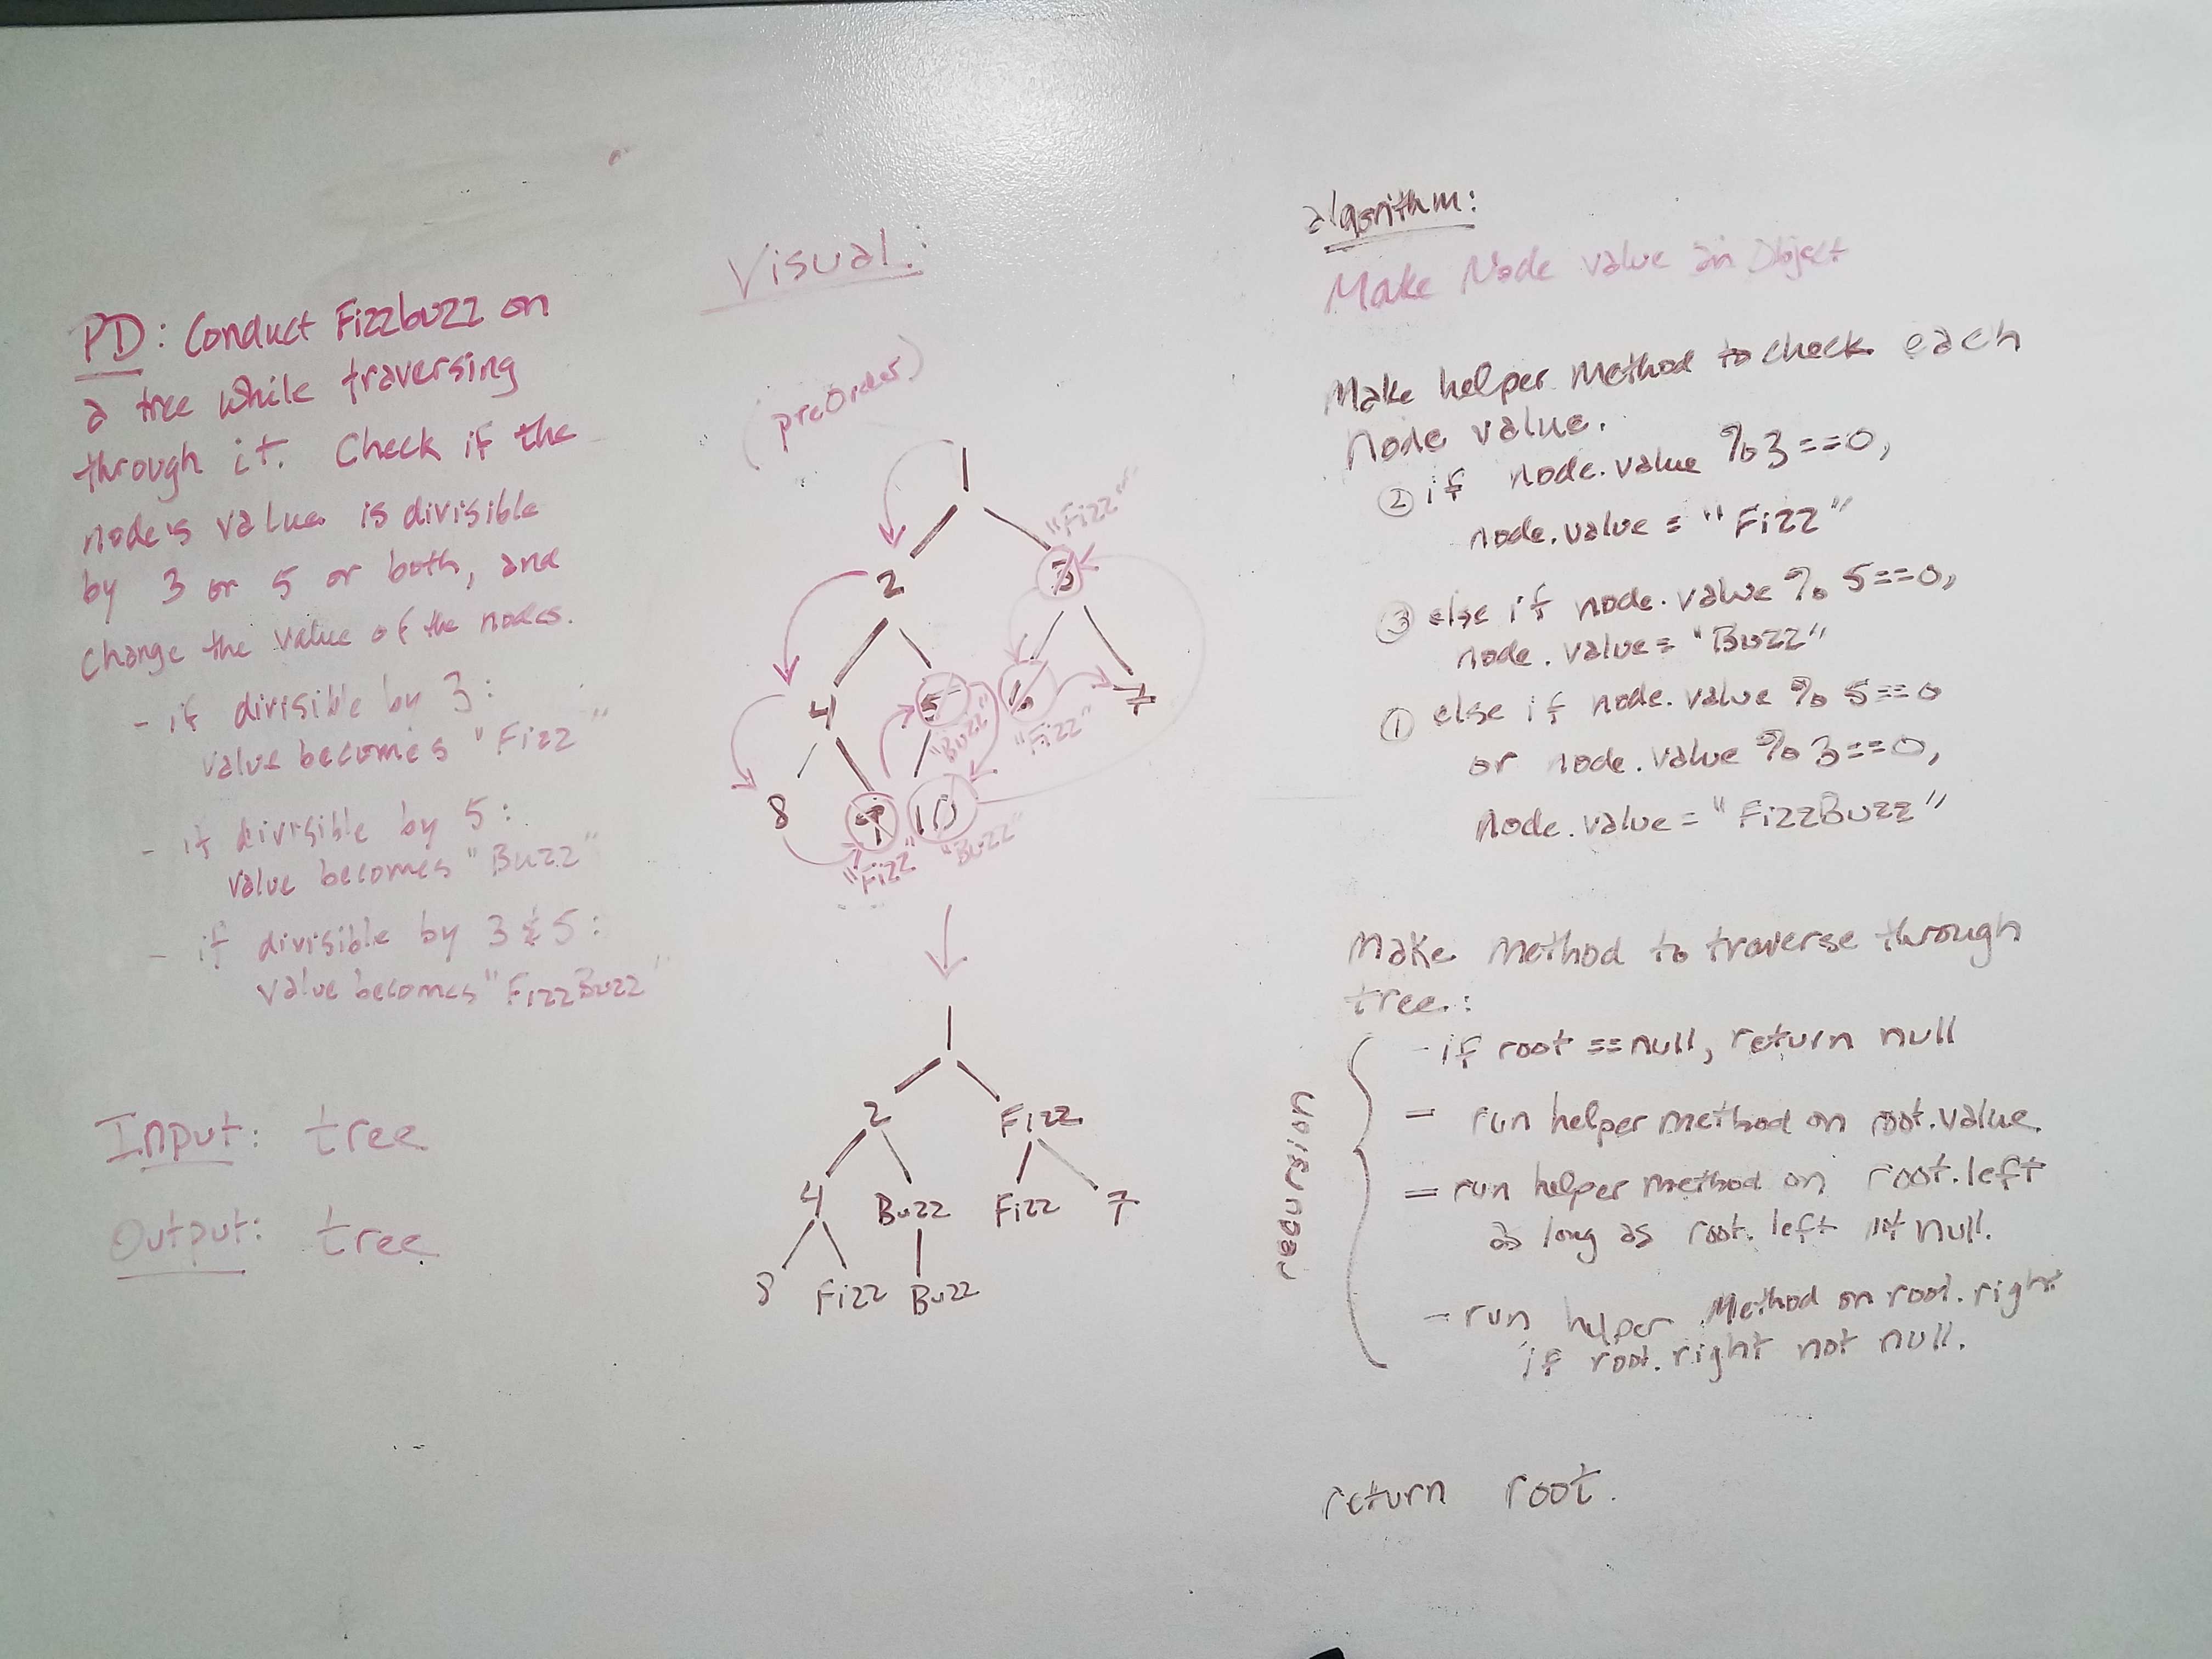 PD: Conduct Fizzbuzz on
a tree while traversing
through it. Check if the
node's value is divisible
by 3 or 5 or both, and
change the value of the nodes.
- if divisible by 3:
value becomes "Fizz"
- if divisible by 5:
value becomes "Buzz"
- if divisible by 3 & 5:
value becomes "FizzBuzz"
Input: tree
Output: tree
Visual:
(preOrder)
1
"Fizz"
2 3
4 5 6 7
"Buzz" "Fizz"
8 9 10
"Fizz" "Buzz"
1
2 Fizz
4 Buzz Fizz 7
8 Fizz Buzz
algorithm:
Make Node value an Object
Make helper method to check each
node value.
② if node.value % 3 == 0,
node.value = "Fizz"
③ else if node.value % 5 == 0,
node.value = "Buzz"
① else if node.value % 5 == 0
or node.value % 3 == 0,
Node.value = "FizzBuzz"
Make method to traverse through
tree.:
recursion
- if root == null, return null
= run helper method on root.value.
= run helper method on root.left
as long as root.left null.
- run helper Method on root.right
if root.right not null.
return root.